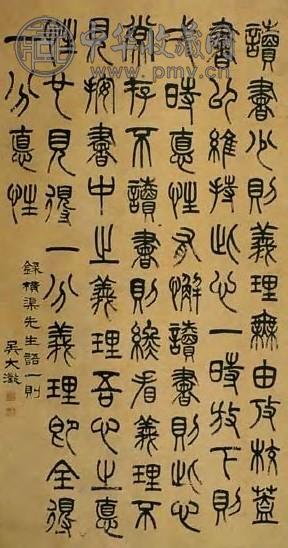 讀書少則義理無由攷核蓋
書以維持此心一時放下則
弌時悳性有懈讀書則此心
常存不讀書則終看義理不
見按書中之義理吾心之悳
性也見得一分義理即全得
一分悳性
錄橫渠先生語一則
吳大澂
中华收藏网